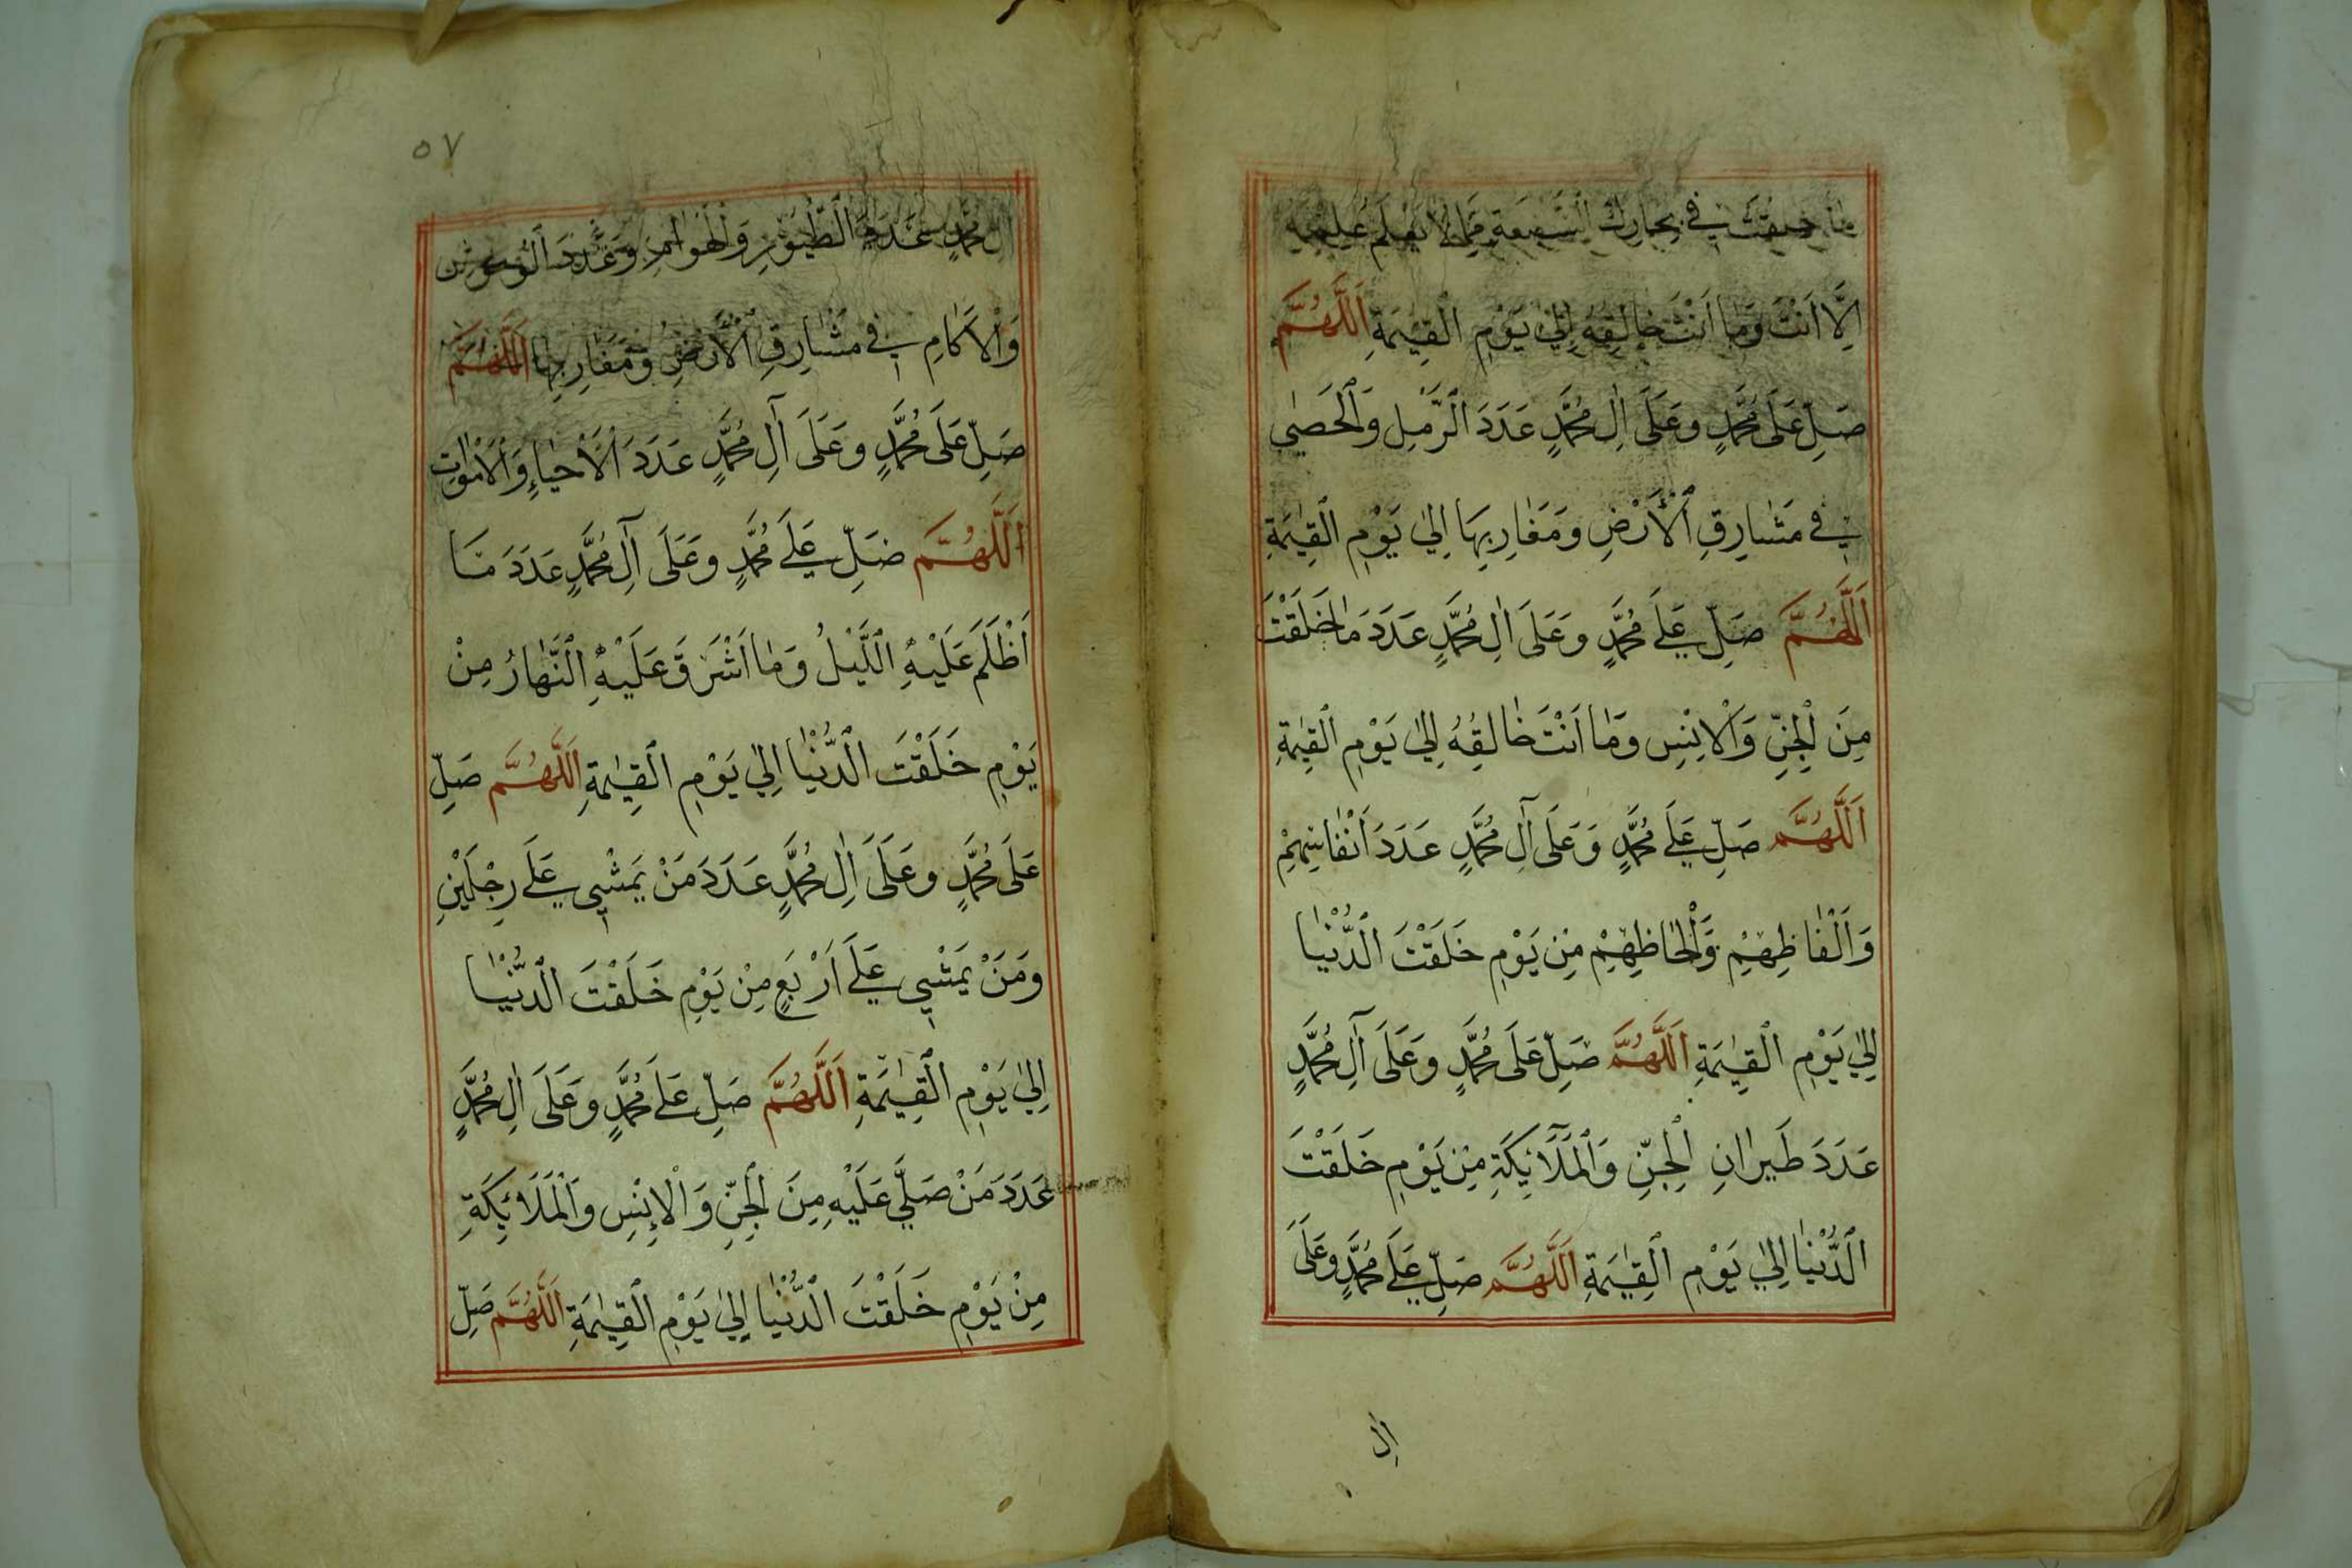 ما خلقت في بحارك السبعة مما لا يعلم علمه
اِلَّا اَنْتَ وَمَا اَنْتَ خَالِقُهُ اِلىٰ يَوْمِ الْقِيٰمَةِ اَللّٰهُمَّ
صَلِّ عَلَى مُحَمَّدٍ وَعَلَى اٰلِ مُحَمَّدٍ عَدَدَ الرَّمْلِ وَالْحَصٰى
فِي مَشَارِقِ الْاَرْضِ وَمَغَارِبِهَا اِلىٰ يَوْمِ الْقِيٰمَةِ
اَللّٰهُمَّ صَلِّ عَلَى مُحَمَّدٍ وَعَلَى اٰلِ مُحَمَّدٍ عَدَدَ مَا خَلَقْتَ
مِنَ الْجِنِّ وَالْاِنْسِ وَمَا اَنْتَ خَالِقُهُ اِلىٰ يَوْمِ الْقِيٰمَةِ
اَللّٰهُمَّ صَلِّ عَلَى مُحَمَّدٍ وَعَلَى آلِ مُحَمَّدٍ عَدَدَ اَنْفَاسِهِمْ
وَاَلْفَاظِهِمْ وَاَلْحَاظِهِمْ مِنْ يَوْمِ خَلَقْتَ الدُّنْيَا
اِلىٰ يَوْمِ الْقِيٰمَةِ اَللّٰهُمَّ صَلِّ عَلَى مُحَمَّدٍ وَعَلَى آلِ مُحَمَّدٍ
عَدَدَ طَيَرَانِ الْجِنِّ وَالْمَلَآئِكَةِ مِنْ يَوْمِ خَلَقْتَ
الدُّنْيَا اِلىٰ يَوْمِ الْقِيٰمَةِ اَللّٰهُمَّ صَلِّ عَلَى مُحَمَّدٍ وَعَلَى
اٰلِ
٥٧
اٰلِ مُحَمَّدٍ عَدَدَ الطُّيُورِ وَالْهَوَامِّ وَعَدَدَ الْوُحُوشِ
وَالْاٰكَامِ فِي مَشَارِقِ الْاَرْضِ وَمَغَارِبِهَا اَللّٰهُمَّ
صَلِّ عَلَى مُحَمَّدٍ وَعَلَى آلِ مُحَمَّدٍ عَدَدَ الْاَحْيَاءِ وَالْاَمْوَاتِ
اَللّٰهُمَّ صَلِّ عَلَى مُحَمَّدٍ وَعَلَى آلِ مُحَمَّدٍ عَدَدَ مَا
اَظْلَمَ عَلَيْهِ اللَّيْلُ وَمَا اَشْرَقَ عَلَيْهِ النَّهَارُ مِنْ
يَوْمِ خَلَقْتَ الدُّنْيَا اِلىٰ يَوْمِ الْقِيٰمَةِ اَللّٰهُمَّ صَلِّ
عَلَى مُحَمَّدٍ وَعَلَى اٰلِ مُحَمَّدٍ عَدَدَ مَنْ يَمْشِي عَلَى رِجْلَيْنِ
وَمَنْ يَمْشِي عَلَى اَرْبَعٍ مِنْ يَوْمِ خَلَقْتَ الدُّنْيَا
اِلىٰ يَوْمِ الْقِيٰمَةِ اَللّٰهُمَّ صَلِّ عَلَى مُحَمَّدٍ وَعَلَى اٰلِ مُحَمَّدٍ
عَدَدَ مَنْ صَلَّى عَلَيْهِ مِنَ الْجِنِّ وَالْاِنْسِ وَالْمَلَائِكَةِ
مِنْ يَوْمِ خَلَقْتَ الدُّنْيَا اِلىٰ يَوْمِ الْقِيٰمَةِ اَللّٰهُمَّ صَلِّ